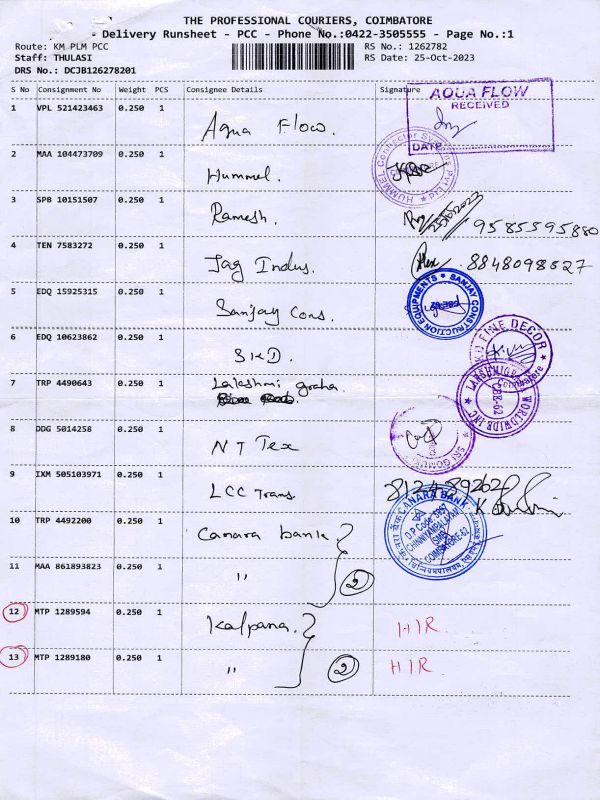 THE PROFESSIONAL COURIERS, COIMBATORE
- Delivery Runsheet - PCC - Phone No.:0422-3505555 - Page No.:1
Route: KM PLM PCC
RS No.: 1262782
Staff: THULASI
RS Date: 25-Oct-2023
DRS No.: DCJB126278201
S No Consignment No Weight PCS Consignee Details Signature
AQUA FLOW
RECEIVED
DATE
1 VPL 521423463 0.250 1 Aqua Flow.
2 MAA 104473709 0.250 1 Hummel.
HUMMEL Connector Systems Pvt Ltd
3 SPB 10151507 0.250 1 Ramesh. 25/10/2023 9585595880
4 TEN 7583272 0.250 1 Jag Indus. 8848098527
5 EDQ 15925315 0.250 1 Sanjay Cons.
SANJAY CONSTRUCTION EQUIPMENTS
6 EDQ 10623862 0.250 1 SKD.
FINE DECOR
7 TRP 4490643 0.250 1 Lalakshmi graha.
WORLDWIDE INC
CBE-62
8 DDG 5014258 0.250 1 N T Tex
SRI
9 IXM 505103971 0.250 1 LCC Trans
10 TRP 4492200 0.250 1 Canara bank
CANARA BANK
DP Code
CHINNIYAMPALAYAM
COIMBATORE-62
11 MAA 861893823 0.250 1 " 2
12 MTP 1289594 0.250 1 Kalpana. HIR.
13 MTP 1289180 0.250 1 " 2 HIR.